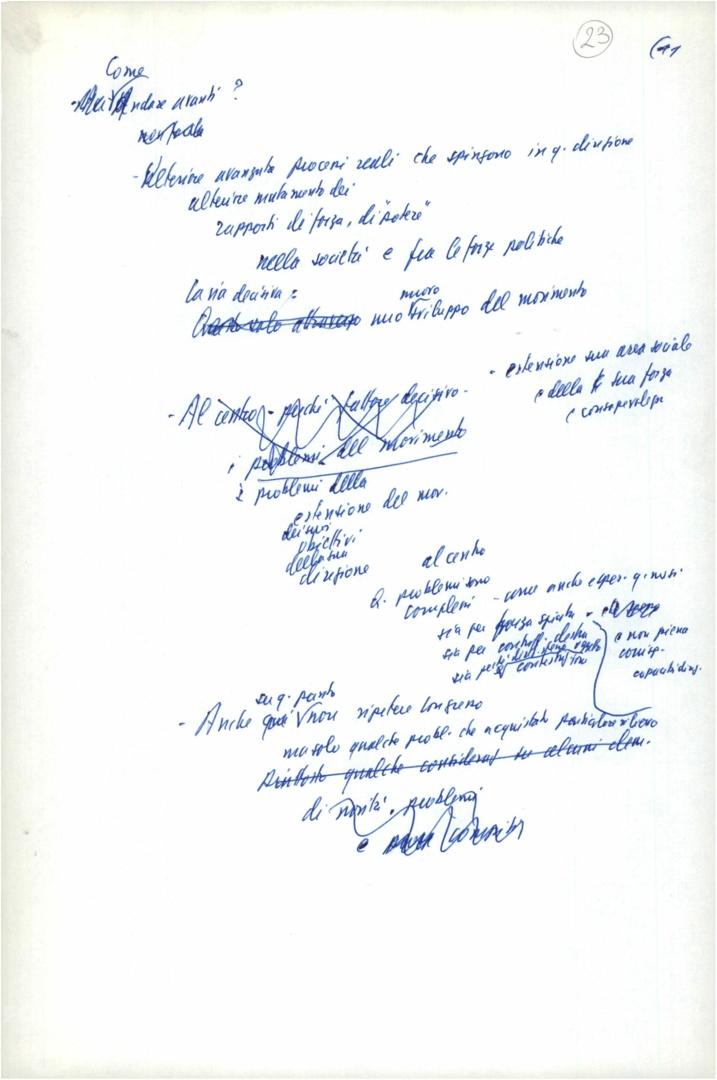 23
Come
andare avanti ?
- Ulteriore avanzata processi reali che spingono in q. direzione
ulteriore mutamento dei
rapporti di forza, di "potere"
nella società e fra le forze politiche
La via decisiva :
nuovo
sviluppo del movimento
- estensione sua area sociale
e della sua forza
e consapevolezza
- Al centro - perché fattore decisivo -
i problemi del movimento
i problemi della
estensione del mov.
dei suoi
obiettivi
della sua
direzione
al centro
Q. problemi sono
complessi - come anche esper. q. mesi
sia per forza spinta
sia per
sia per contestazioni
e non piena
corrisp.
capacità
su q. punto
- Anche qui non ripetere Congresso
ma solo qualche probl. che acquistato particolare rilievo
Piuttosto qualche consideraz su alcuni elem.
di novità . problemi
e